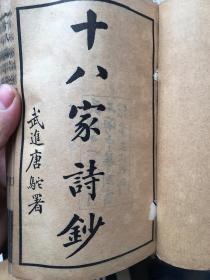 十八家詩鈔
武進唐駝署